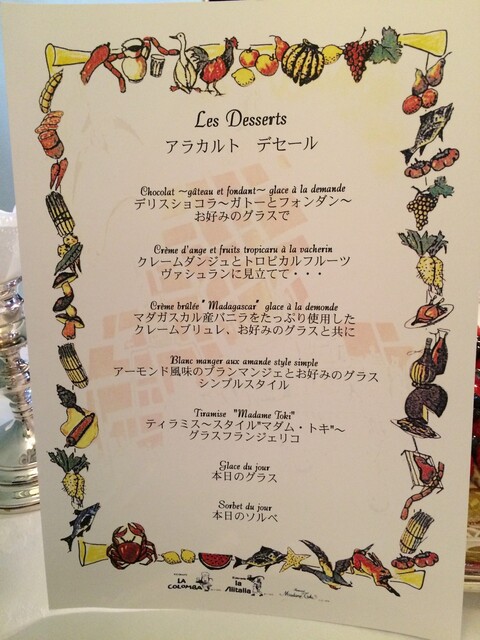 Les Desserts
アラカルト　デセール
Chocolat ～gâteau et fondant～ glace à la demande
デリスショコラ～ガトーとフォンダン～
お好みのグラスで
Crème d'ange et fruits tropicaru à la vacherin
クレームダンジュとトロピカルフルーツ
ヴァシュランに見立てて・・・
Crème brûlée "Madagascar" glace à la demonde
マダガスカル産バニラをたっぷり使用した
クレームブリュレ、お好みのグラスと共に
Blanc manger aux amande style simple
アーモンド風味のブランマンジェとお好みのグラス
シンプルスタイル
Tiramise "Madame Toki"
ティラミス～スタイル"マダム・トキ"～
グラスフランジェリコ
Glace du jour
本日のグラス
Sorbet du jour
本日のソルベ
LA COLOMBA
la Alitalia
Madame Toki